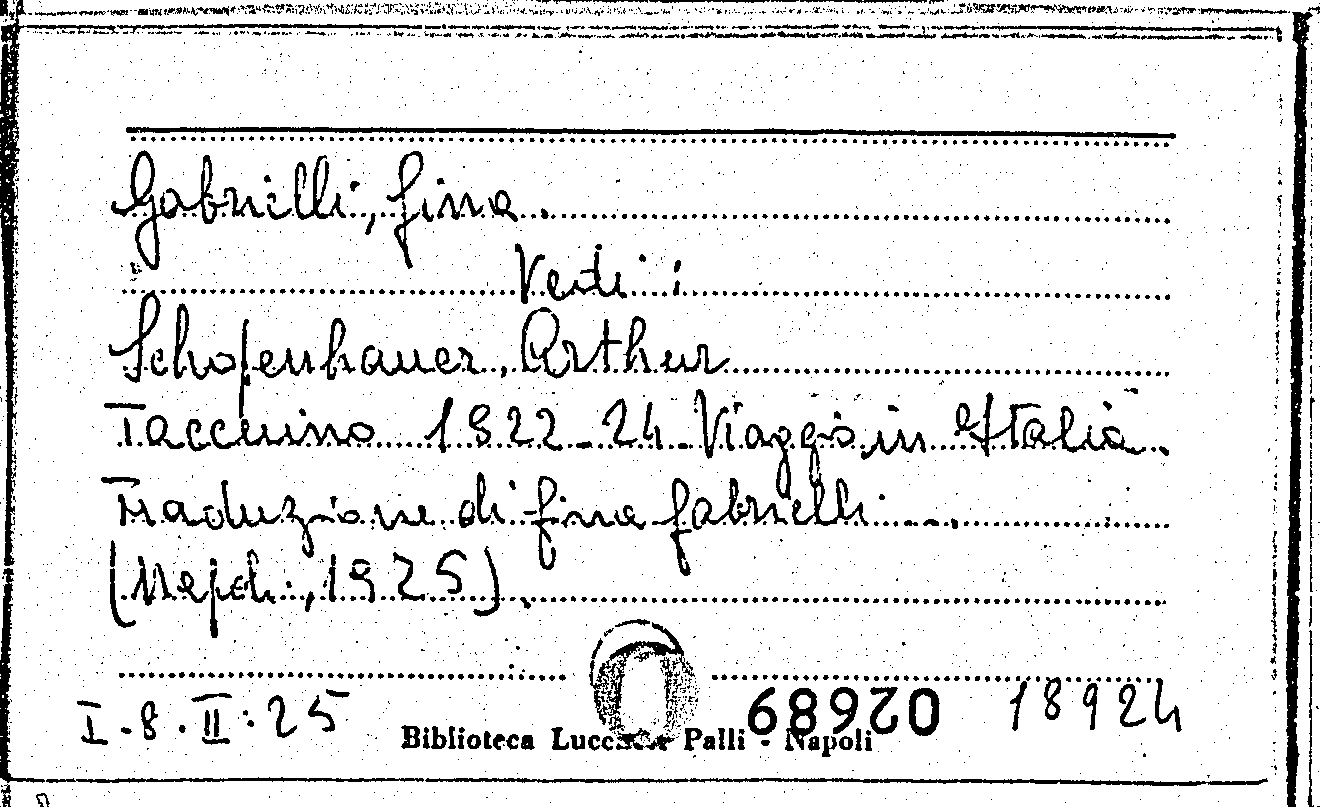 Gabrielli, Gina.
Vedi:
Schopenhauer, Arthur
Taccuino 1822-24. Viaggio in Italia.
Traduzione di Gina Gabrielli....
(Napoli, 1925).
I.8.II:25
020689
18924
Biblioteca Lucchesi Palli - Napoli